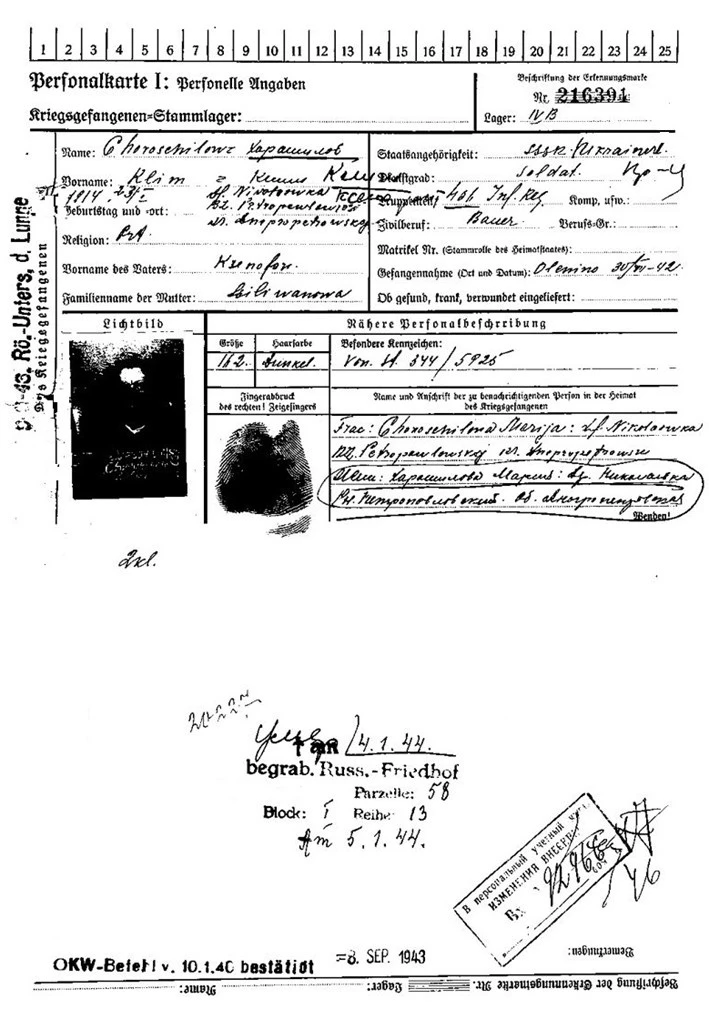 1 2 3 4 5 6 7 8 9 10 11 12 13 14 15 16 17 18 19 20 21 22 23 24 25
Personalkarte I: Personelle Angaben
Kriegsgefangenen-Stammlager:
Beschriftung der Erkennungsmarke
Nr. 216391
Lager: IV B
Name: Choroschilow Харашилов
Vorname: Klim
Geburtstag und -ort: 1914 23/I df. Nikolaowka
Bz. Petropawlowsk
Dnepropetrowsk
Religion:
Vorname des Vaters: Ksenofon.
Familienname der Mutter: Siliwanowa
Staatsangehörigkeit: Ukrainer.
Dienstgrad: Soldat.
Truppenteil: 406 Inf. Reg Komp. usw.:
Zivilberuf: Bauer Berufs-Gr.:
Matrikel Nr. (Stammrolle des Heimatstaates):
Gefangennahme (Ort und Datum): Olenino 30/VII-42.
Ob gesund, krank, verwundet eingeliefert:
-43. Rö.-Unters. d. Lunge
Des Kriegsgefangenen
Lichtbild
Nähere Personalbeschreibung
Größe Haarfarbe Besondere Kennzeichen:
162. Dunkel. Von. St. 344/5925
Fingerabdruck
des rechten! Zeigefingers
Name und Anschrift der zu benachrichtigenden Person in der Heimat
des Kriegsgefangenen
Frau: Choroschilowa Marija: df. Nikolaowka
Petropawlowsky Dnepropetrowsk
Жена: Харашилова Мария: Николаевка
Рн. Петроповловский. Об. Днепропетровская
Wenden!
2kl.
† am 4.1.44.
begrab. Russ.-Friedhof
Parzelle: 58
Block: I Reihe: 13
Am 5.1.44.
В персональный учетный
ИЗМЕНЕНИЯ ВНЕСЕНЫ
46
OKW-Befehl v. 10.1.40 bestätigt
=8. SEP. 1943
Bemerkungen:
Beschriftung der Erkennungsmarke Nr.
Lager:
Name: